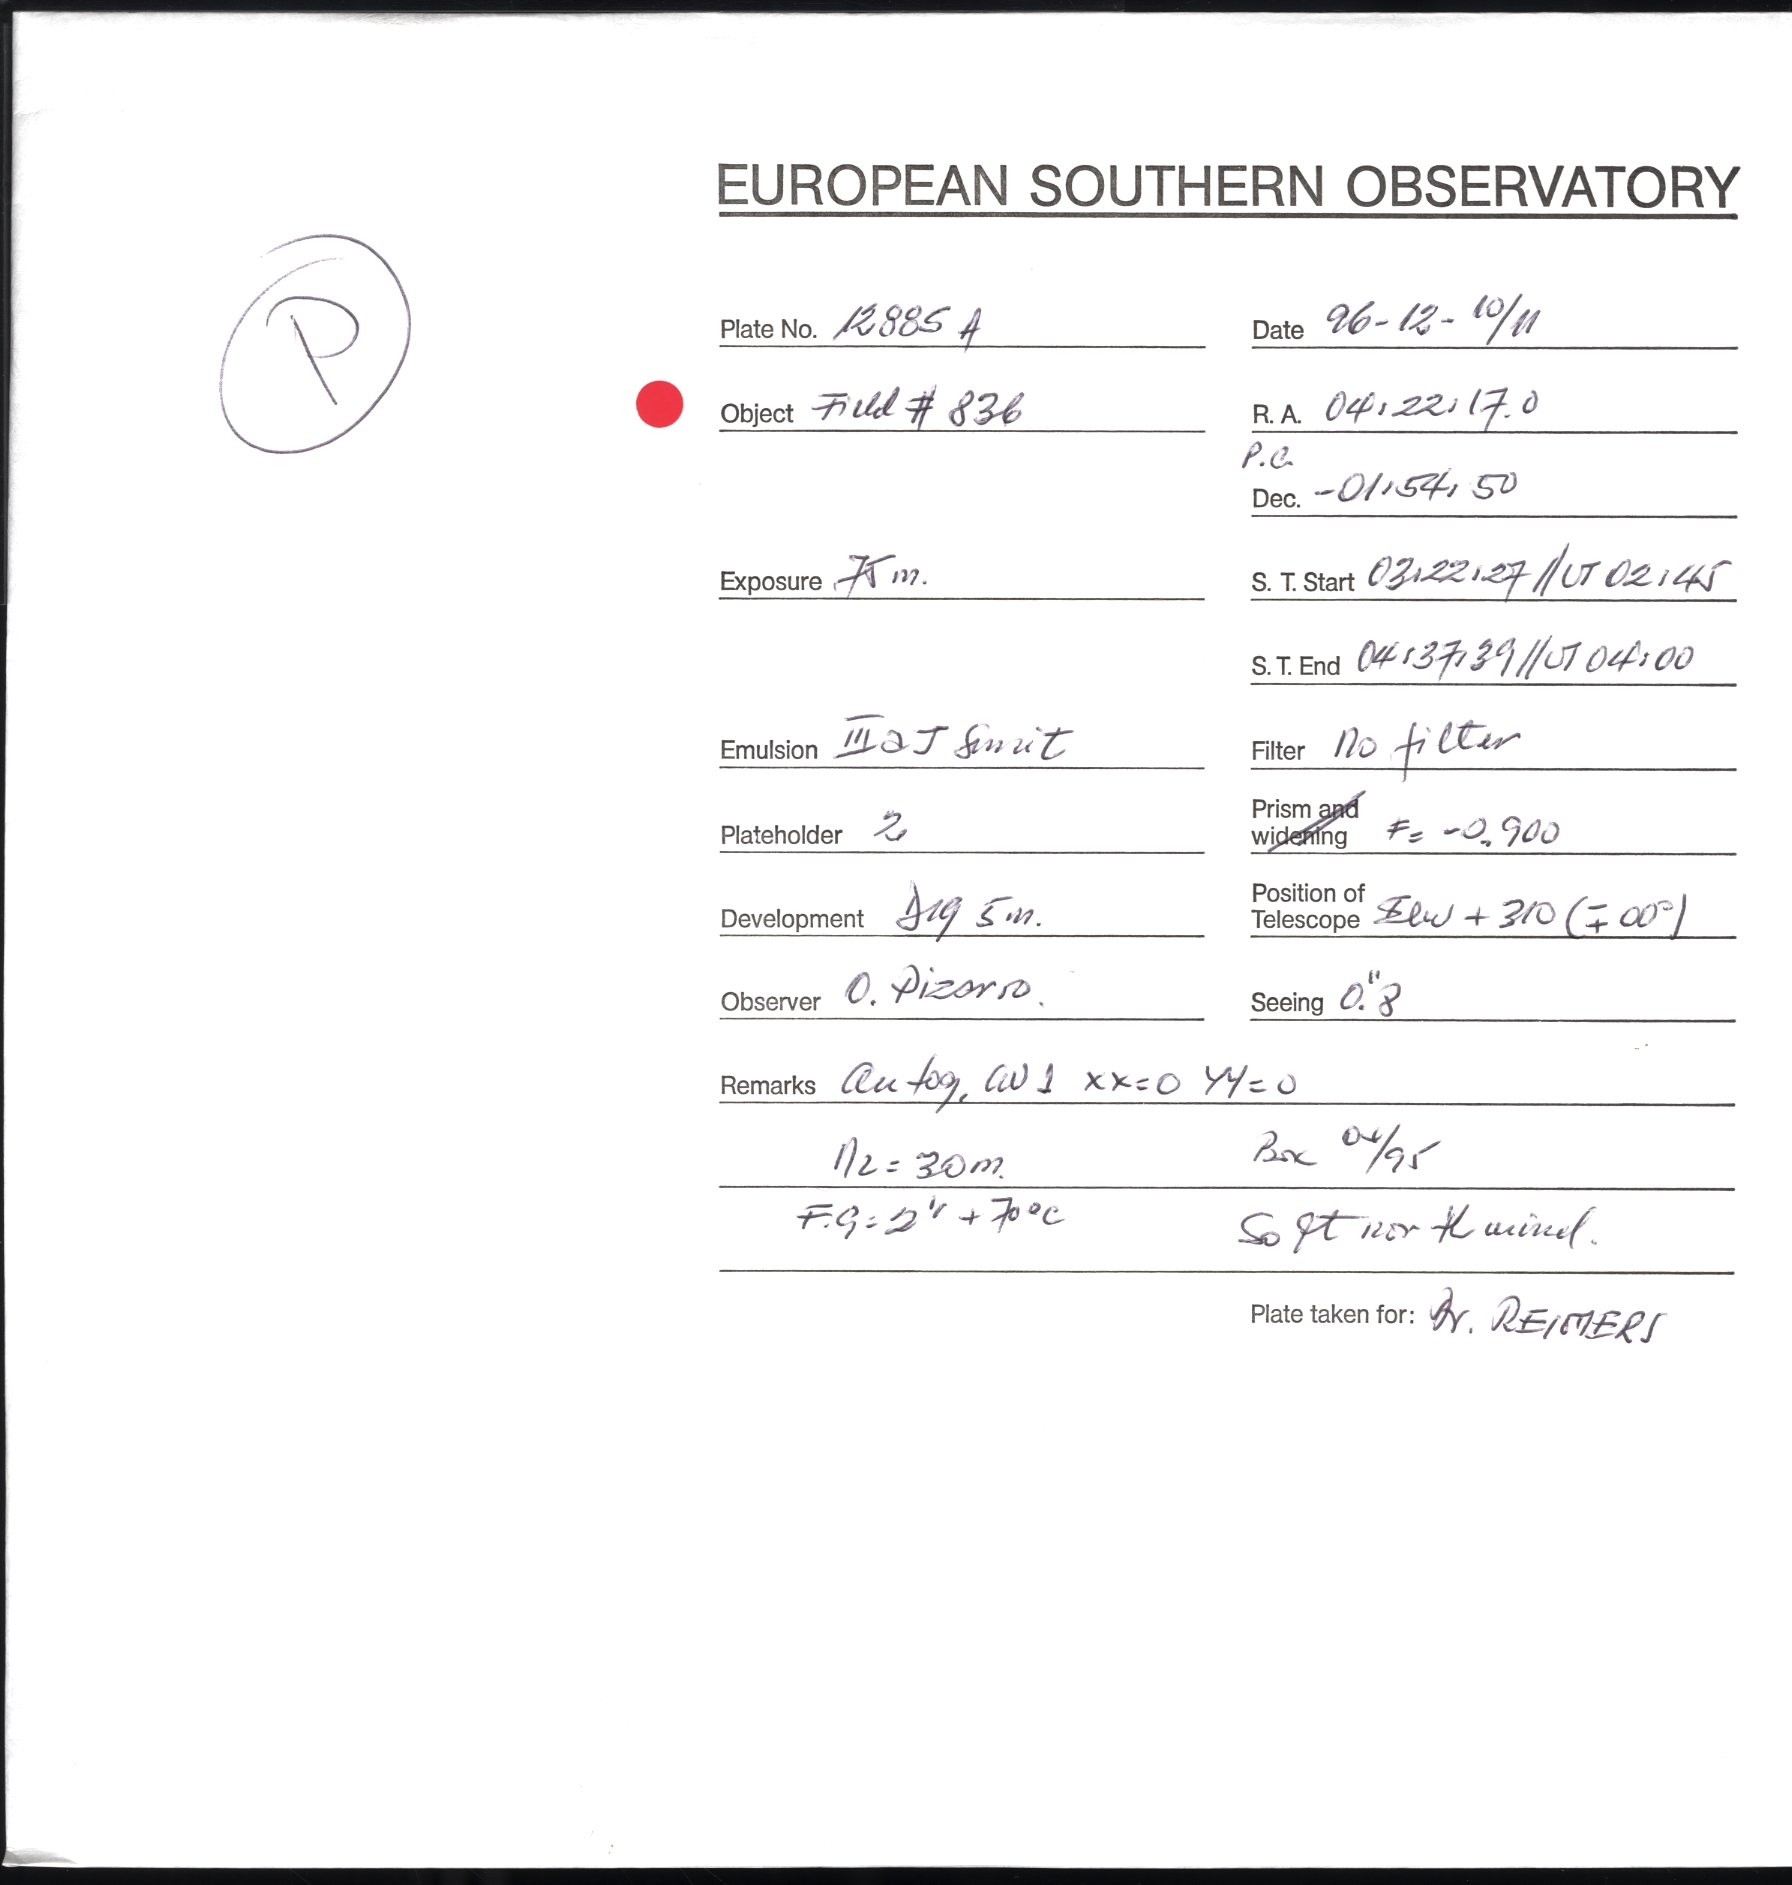 EUROPEAN SOUTHERN OBSERVATORY
P
Plate No. 12885 A
Date 96-12-10/11
Object Field # 836
R. A. 04:22:17.0
P.C.
Dec. -01:54:50
Exposure 75 m.
S. T. Start 03:22:27 // UT 02:45
S. T. End 04:37:39 // UT 04:00
Emulsion III a J
Filter No filter
Plateholder 2
Prism and widening F= -0.900
Development D19 5 m.
Position of Telescope + 310 (∓ 00°)
Observer O. Pizarro.
Seeing 0."8
Remarks Autog, XX=0 YY=0
N2 = 30 m.
Box 04/95
F.G = 2h + 70°C
Soft north wind.
Plate taken for: Dr. REIMERS